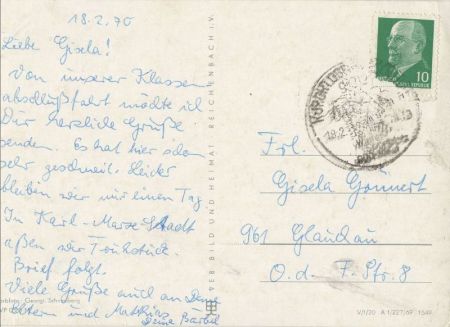 18.2.70
Liebe Gisela!
Von unserer Klassen
abschlußfahrt möchte ich
Dir herzliche Grüße
senden. Es hat hier schon
sehr geschneit. Leider
bleiben wir nur einen Tag
In Karl-Marx-Stadt
aßen wir Frühstück.
Brief folgt.
Viele Grüße auch an Deine
Eltern und Matthias
Deine Bärbel
VEB BILD UND HEIMAT REICHENBACH i.V.
10
18.2.
Frl.
Gisela Gonnert
961 Glauchau
O.d. F. Str. 8
V/1/20 A 1/227/69 1549